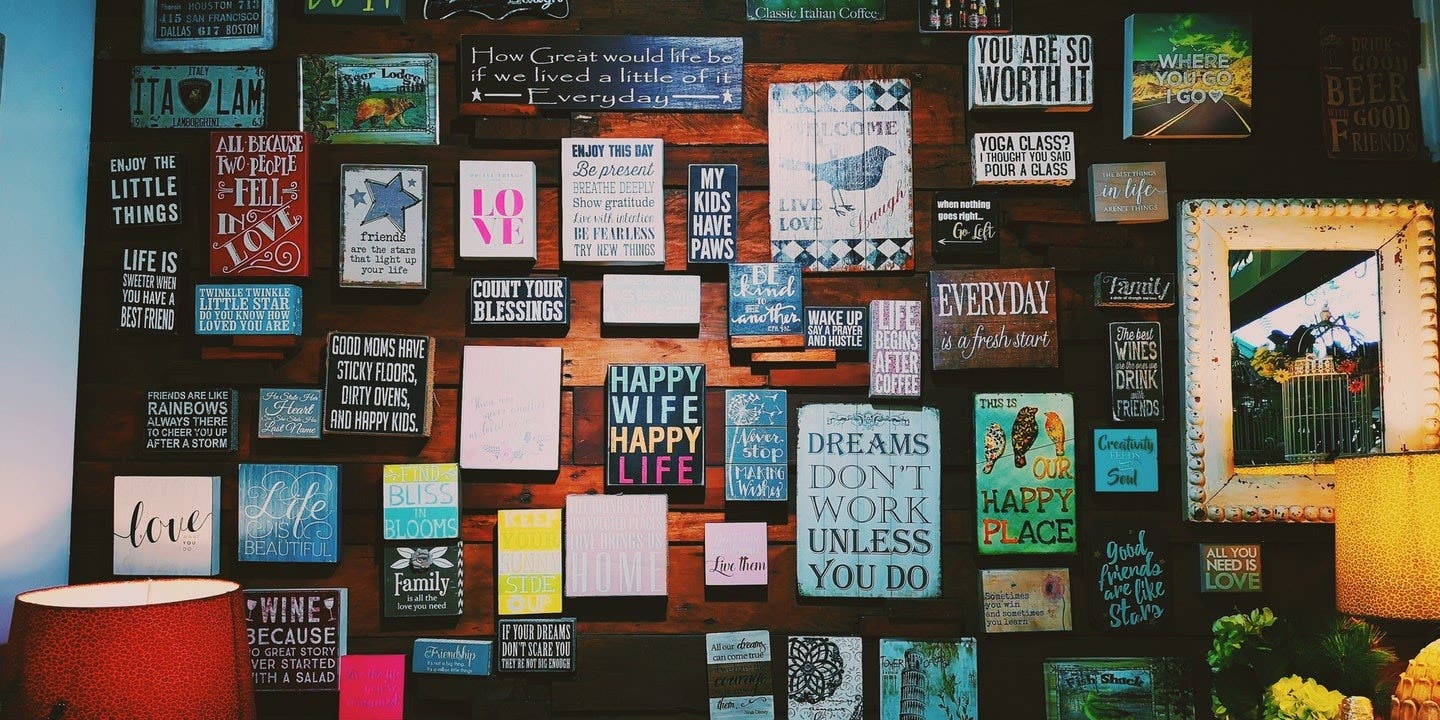 HOUSTON 713
415 SAN FRANCISCO
DALLAS 617 BOSTON
Classic Italian Coffee
ITALY
ITA LAM
LAMBORGHINI
Bear Lodge
How Great would life be
if we lived a little of it
Everyday
YOU ARE SO
WORTH IT
WHERE
YOU GO
I GO
DRINK
GOOD
BEER
WITH GOOD
FRIENDS
ENJOY THE
LITTLE
THINGS
ALL BECAUSE
TWO PEOPLE
FELL
IN LOVE
friends
are the stars
that light up
your life
LO
VE
ENJOY THIS DAY
Be present
BREATHE DEEPLY
Show gratitude
Live with intention
BE FEARLESS
TRY NEW THINGS
MY
KIDS
HAVE
PAWS
WELCOME
LIVE
LOVE
Laugh
YOGA CLASS?
I THOUGHT YOU SAID
POUR A CLASS
THE BEST THINGS
in life
AREN'T THINGS
when nothing
goes right...
Go Left
LIFE IS
SWEETER WHEN
YOU HAVE A
BEST FRIEND
TWINKLE TWINKLE
LITTLE STAR
DO YOU KNOW HOW
LOVED YOU ARE
COUNT YOUR
BLESSINGS
BE
kind
to one
another
EPH. 4:32
WAKE UP
SAY A PRAYER
AND HUSTLE
LIFE
BEGINS
AFTER
COFFEE
EVERYDAY
is a fresh start
Family
The best
WINES
are the ones we
DRINK
with
FRIENDS
GOOD MOMS HAVE
STICKY FLOORS,
DIRTY OVENS,
AND HAPPY KIDS.
FRIENDS ARE LIKE
RAINBOWS
ALWAYS THERE
TO CHEER YOU UP
AFTER A STORM
He Stole Her
Heart
So She Stole His
Last Name
HAPPY
WIFE
HAPPY
LIFE
Never
stop
MAKING
Wishes
DREAMS
DON'T
WORK
UNLESS
YOU DO
THIS IS
OUR
HAPPY
PLACE
Creativity
FEEDS
Soul
love
YOU
DO
Life
IS
BEAUTIFUL
FIND
BLISS
IN
BLOOMS
Family
is all the
love you need
KEEP
YOUR
SUNNY
SIDE
UP
LOVE BRINGS US
HOME
Live them
Sometimes
you win
and sometimes
you learn
good
friends
are like
Stars
ALL YOU
NEED IS
LOVE
WINE
BECAUSE
NO GREAT STORY
EVER STARTED
WITH A SALAD
Friendship
IF YOUR DREAMS
DON'T SCARE YOU
THEY'RE NOT BIG ENOUGH
All our dreams
can come true
courage
them
Fish Shack